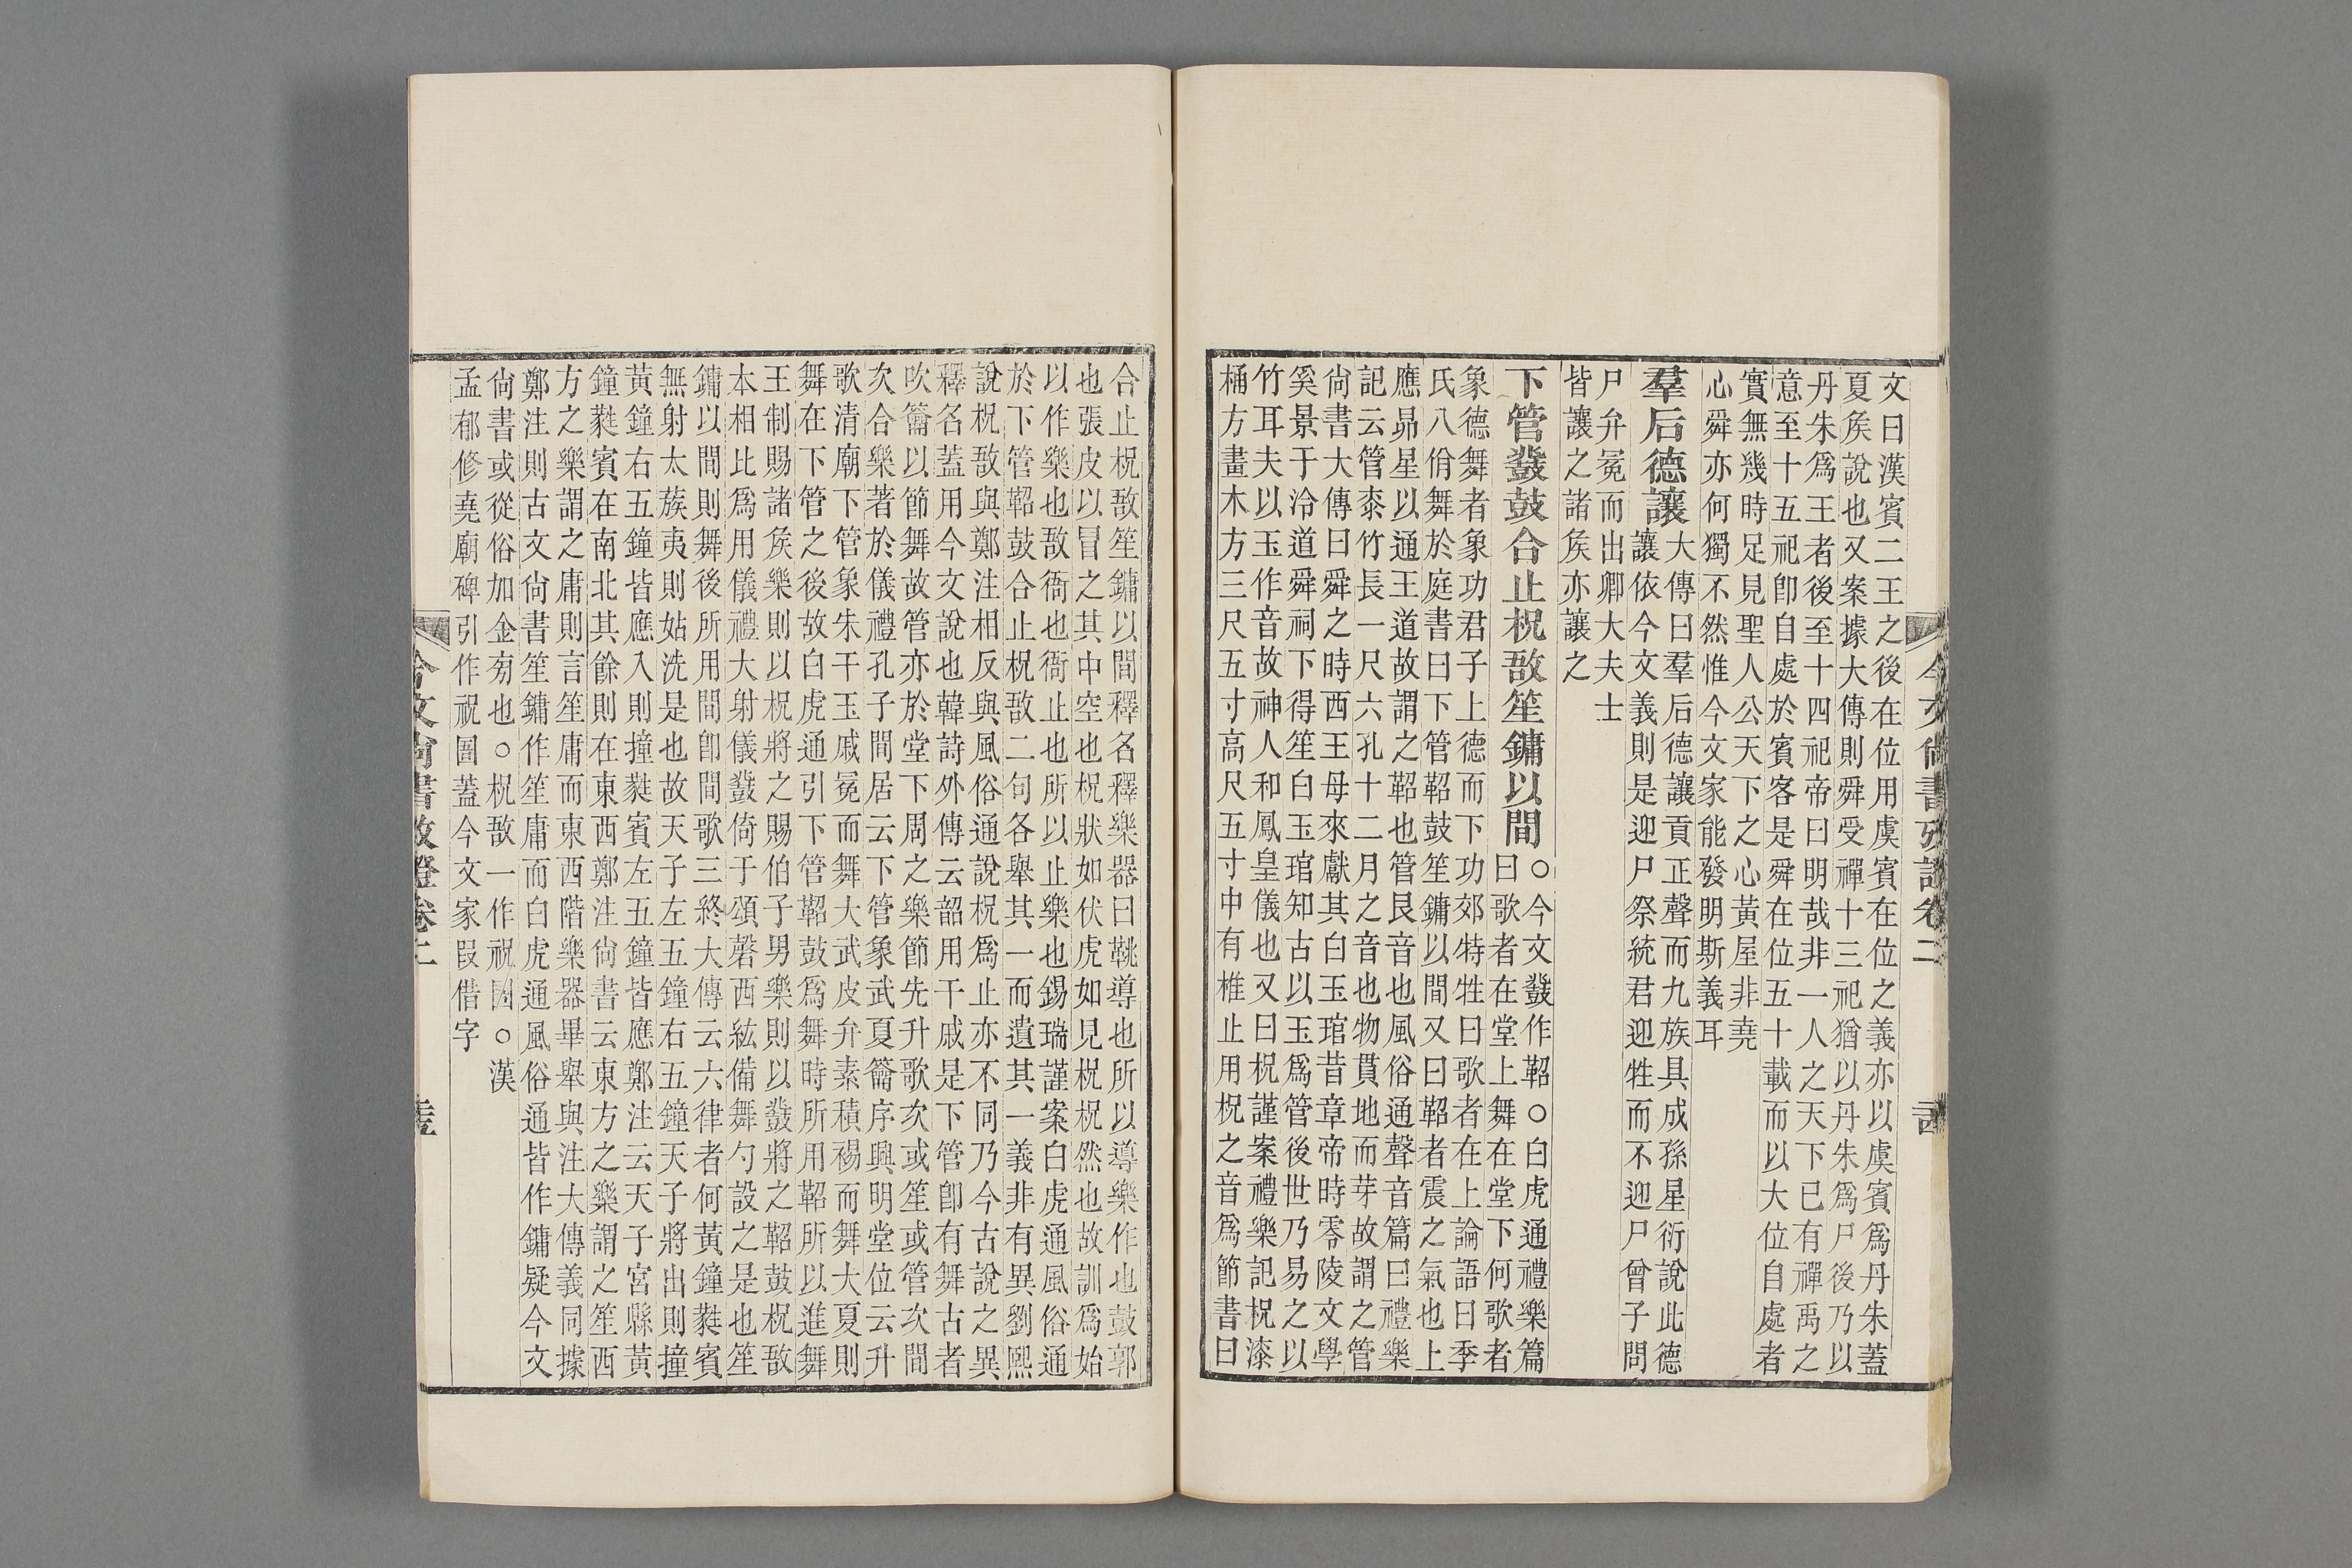 文曰漢賓二王之後在位用虞賓在位之義亦以虞賓爲丹朱蓋
夏矦說也又案據大傳則舜受禪十三祀猶以丹朱爲尸後乃以
丹朱爲王者後至十四祀帝曰明哉非一人之天下巳有禪禹之
意至十五祀卽自處於賓客是舜在位五十載而以大位自處者
實無幾時足見聖人公天下之心黃屋非堯
心舜亦何獨不然惟今文家能發明斯義耳
羣后德讓
大傳曰羣后德讓貢正聲而九族具成孫星衍說此德
讓依今文義則是迎尸祭統君迎牲而不迎尸曾子問
尸弁冕而出卿大夫士
皆讓之諸矦亦讓之
下管鼗鼓合止柷敔笙鏞以間
○今文鼗作鞀○白虎通禮樂篇
曰歌者在堂上舞在堂下何歌者
象德舞者象功君子上德而下功郊特牲曰歌者在上論語曰季
氏八佾舞於庭書曰下管鞀鼓笙鏞以間又曰鞀者震之氣也上
應昴星以通王道故謂之鞀也管艮音也風俗通聲音篇曰禮樂
記云管桼竹長一尺六孔十二月之音也物貫地而芽故謂之管
尙書大傳曰舜之時西王母來獻其白玉琯昔章帝時零陵文學
奚景于泠道舜祠下得笙白玉琯知古以玉爲管後世乃易之以
竹耳夫以玉作音故神人和鳳皇儀也又曰柷謹案禮樂記柷漆
桶方畫木方三尺五寸高尺五寸中有椎止用柷之音爲節書曰
今文尙書攷證卷二
合止柷敔笙鏞以間釋名釋樂器曰鞉導也所以導樂作也鼓郭
也張皮以冒之其中空也柷狀如伏虎如見柷柷然也故訓爲始
以作樂也敔衙也衙止也所以止樂也錫瑞謹案白虎通風俗通
於下管鞀鼓合止柷敔二句各舉其一而遺其一義非有異劉熙
說柷敔與鄭注相反與風俗通說柷爲止亦不同乃今古說之異
釋名蓋用今文說也韓詩外傳云韶用干戚是下管卽有舞古者
吹籥以節舞故管亦於堂下周之樂節先升歌次或笙或管次間
次合樂著於儀禮孔子間居云下管象武夏籥序興明堂位云升
歌清廟下管象朱干玉戚冕而舞大武皮弁素積裼而舞大夏則
舞在下管之後故白虎通引下管鞀鼓爲舞時所用鞀所以進舞
王制賜諸矦樂則以柷將之賜伯子男樂則以鼗將之鞀鼓柷敔
本相比爲用儀禮大射儀鼗倚于頌磬西紘備舞勺設之是也笙
鏞以間則舞後所用間卽間歌三終大傳云六律者何黃鐘蕤賓
無射太蔟夷則姑洗是也故天子左五鐘右五鐘天子將出則撞
黃鐘右五鐘皆應入則撞蕤賓左五鐘皆應鄭注云天子宮縣黃
鐘蕤賓在南北其餘則在東西鄭注尙書云東方之樂謂之笙西
方之樂謂之庸則言笙庸而東西階樂器畢舉與注大傳義同據
鄭注則古文尙書笙鏞作笙庸而白虎通風俗通皆作鏞疑今文
尙書或從俗加金旁也○柷敔一作祝圄○漢
孟郁修堯廟碑引作祝圄蓋今文家叚借字
今文尙書攷證卷二